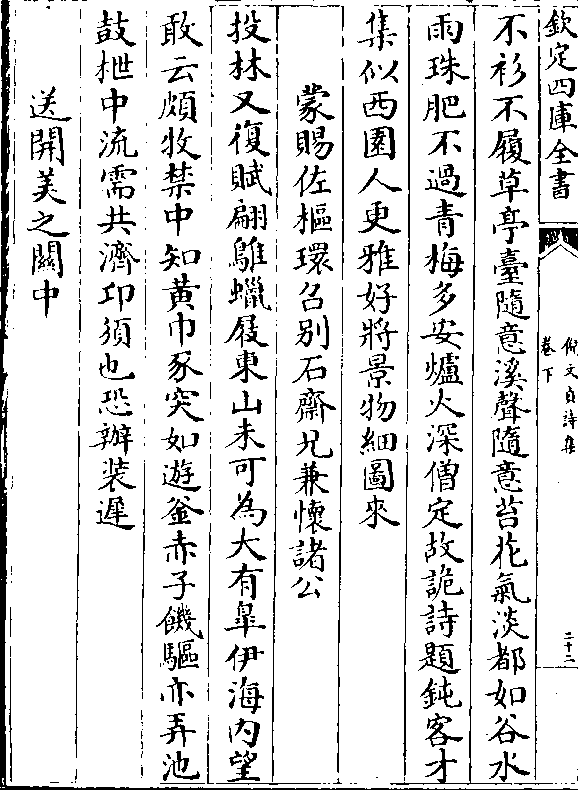 欽定四庫全書
倪文貞詩集
卷下
二十二
不衫不履草亭臺隨意溪聲隨意苔花氣淡都如谷水
雨珠肥不過青梅多安爐火深僧定故詭詩題鈍客才
集似西園人更雅好將景物細圖來
蒙賜佐樞環召别石齋兄兼懷諸公
投林又復賦翩鵻蠟屐東山未可為大有皐伊海内望
敢云頗牧禁中知黄巾豕突如遊釜赤子饑驅亦弄池
鼓枻中流需共濟卭須也恐辦装遲
送開美之闗中